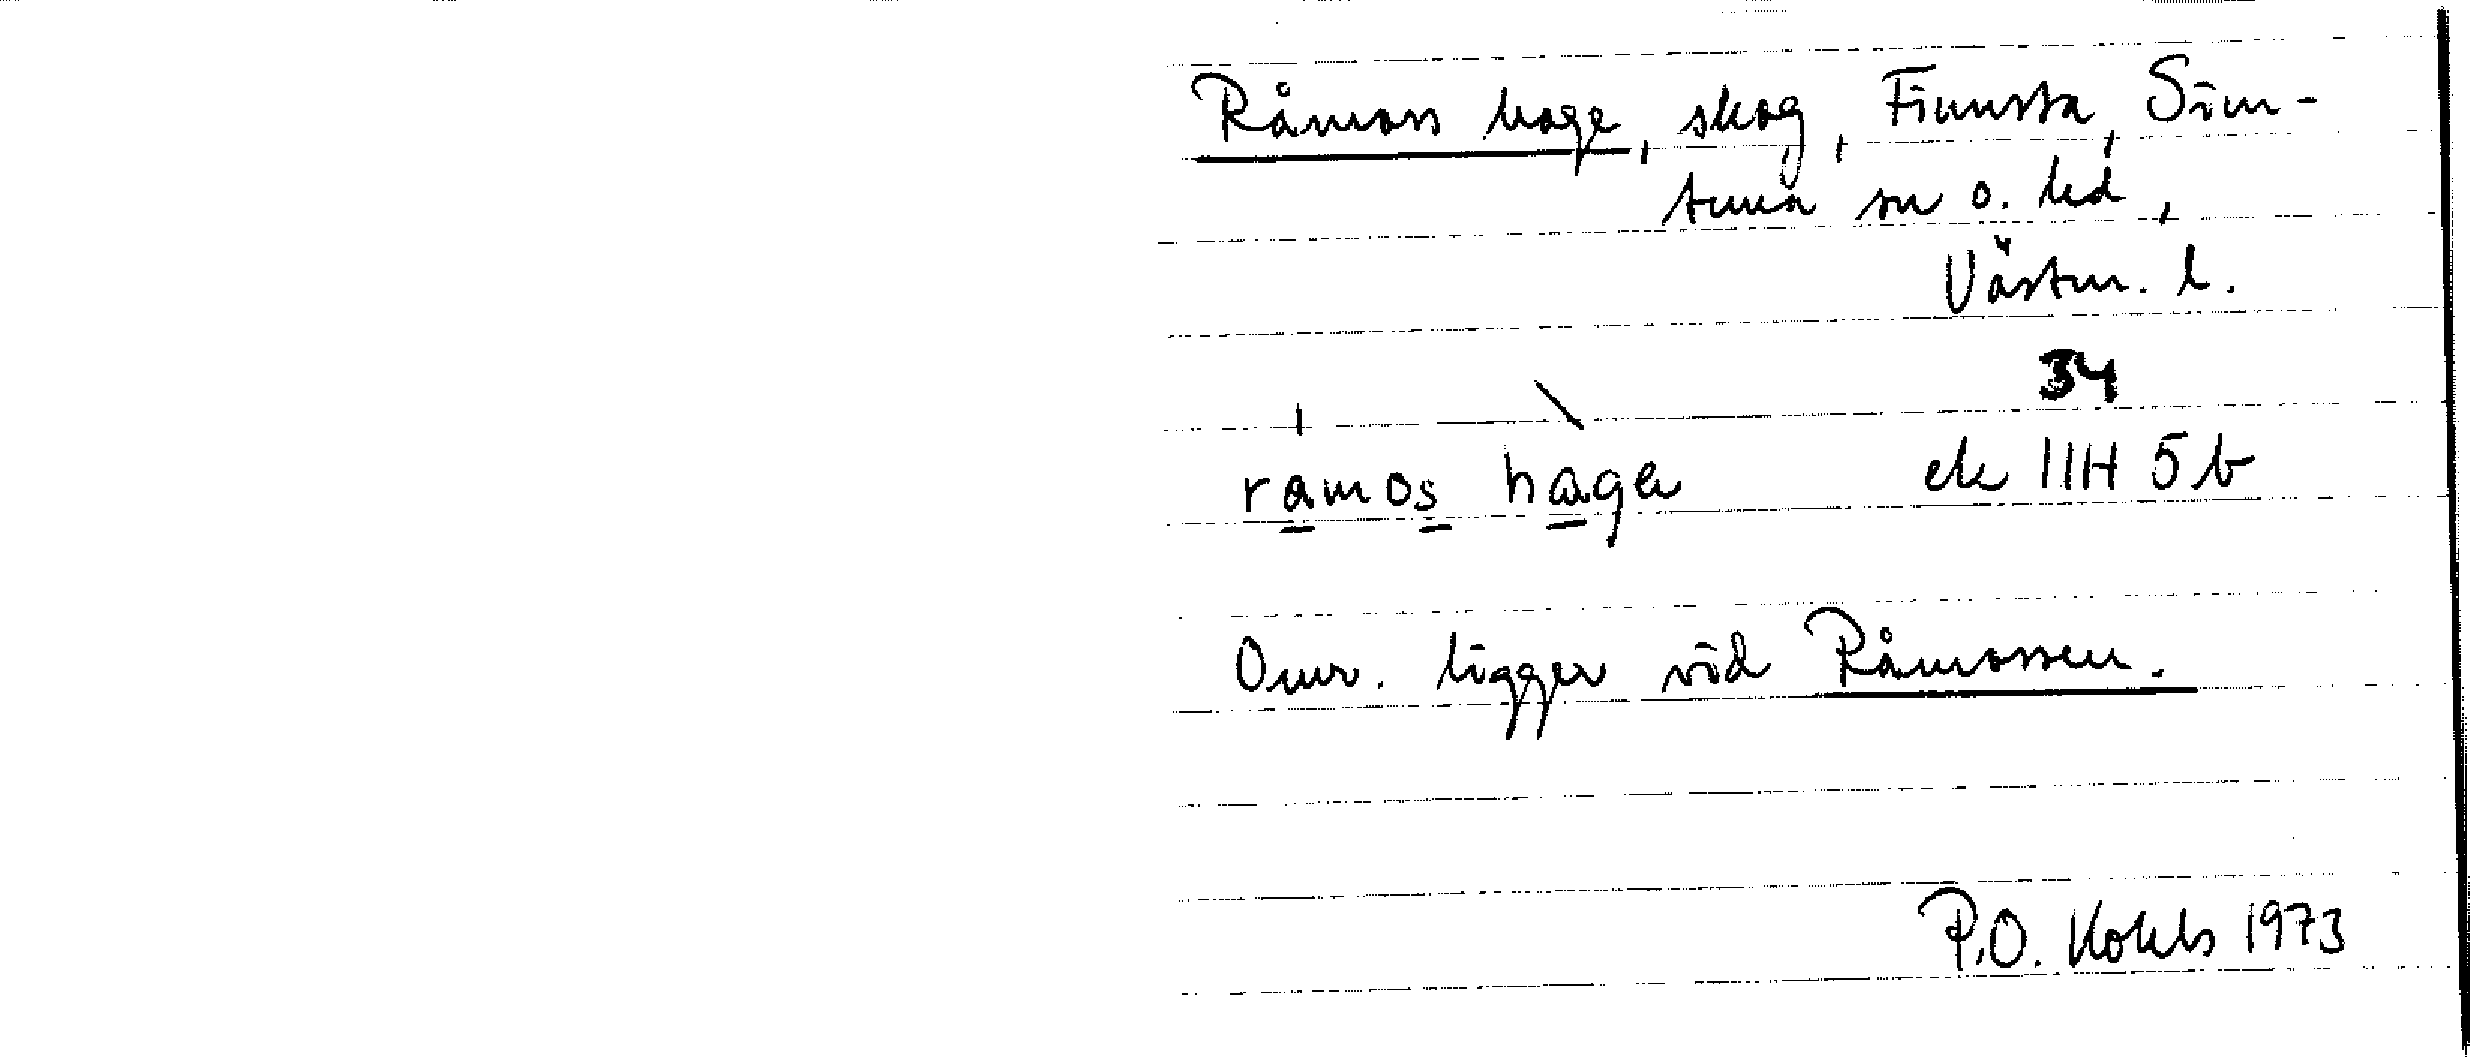 Råmoss hage, skog, Finnsta, Sim-
tuna sn o. hd,
Västm. l.
34
ramos hagen ek 11H 5b
Omr. ligger vid Råmossen.
P.O. Kohls 1973